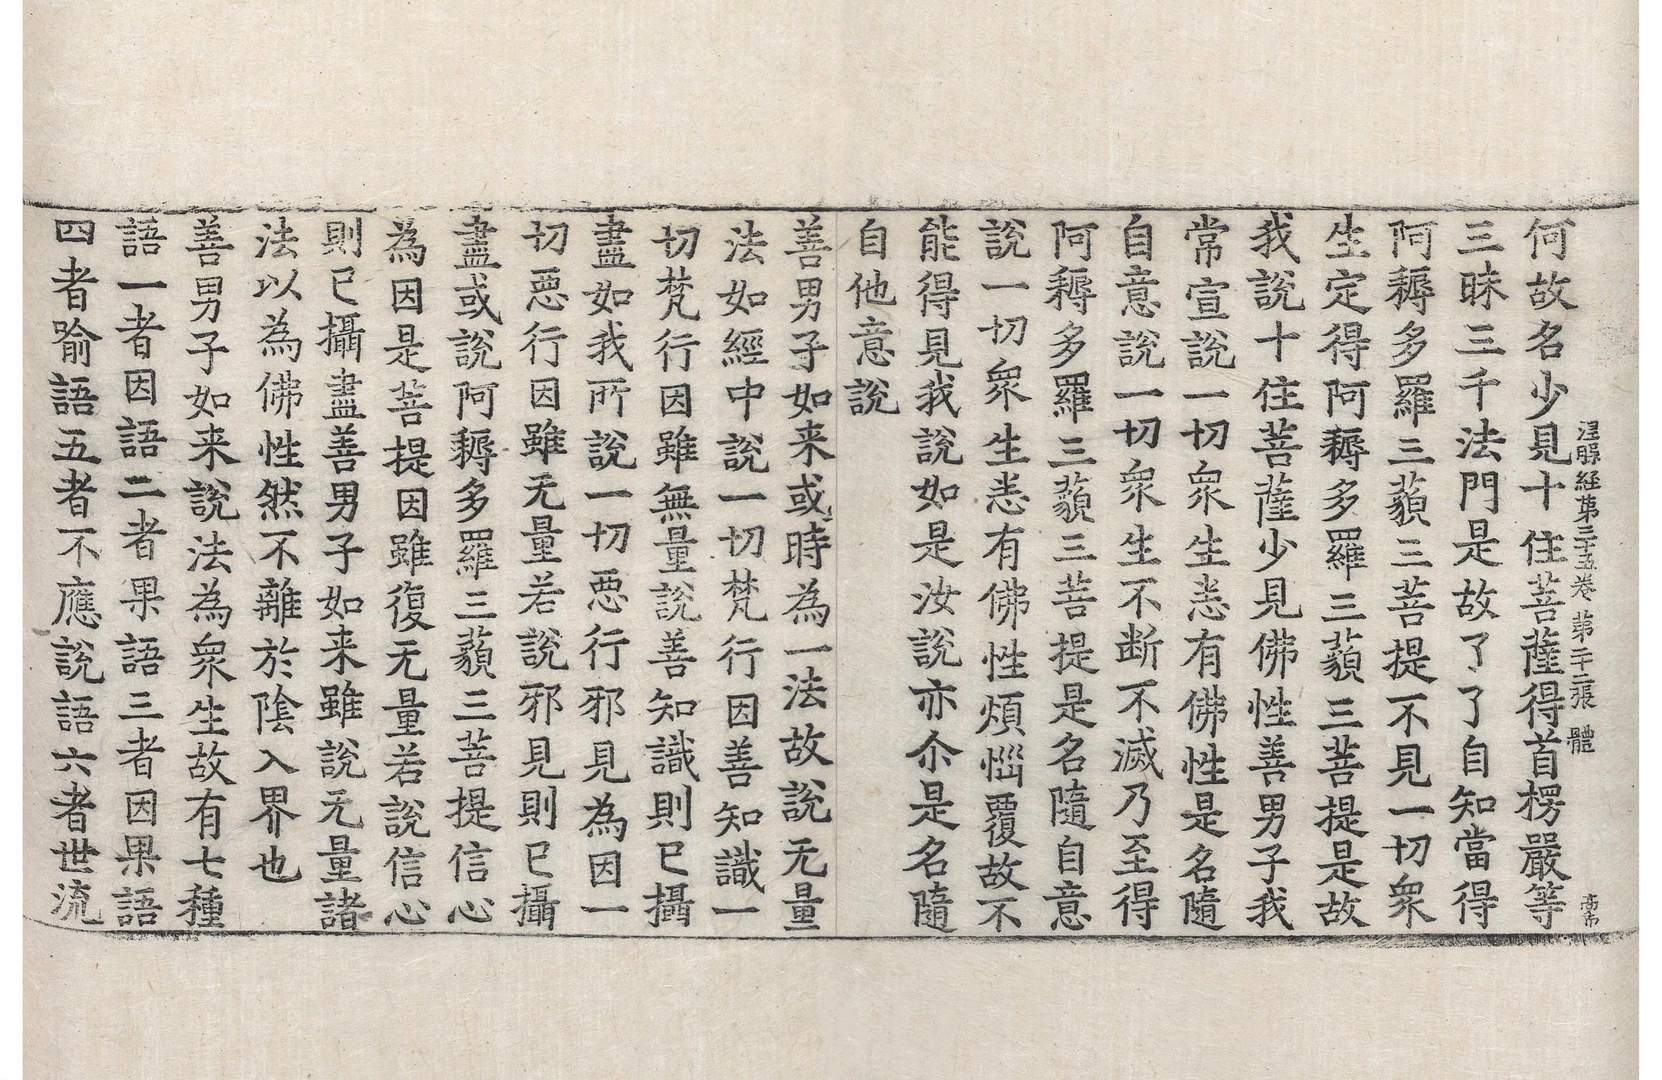 涅槃経第三十五卷 第二十二張 體
何故名少見十住菩薩得首楞嚴等
三昧三千法門是故了了自知當得
阿耨多羅三藐三菩提不見一切衆
生定得阿耨多羅三藐三菩提是故
我說十住菩薩少見佛性善男子我
常宣說一切衆生悉有佛性是名隨
自意說一切衆生不断不滅乃至得
阿耨多羅三藐三菩提是名隨自意
說一切衆生悉有佛性煩惱覆故不
能得見我說如是汝說亦尒是名隨
自他意說
善男子如来或時為一法故說无量
法如經中說一切梵行因善知識一
切梵行因雖無量說善知識則已攝
盡如我所說一切惡行邪見為因一
切惡行因雖无量若說邪見則已攝
盡或說阿耨多羅三藐三菩提信心
為因是菩提因雖復无量若說信心
則已攝盡善男子如来雖說无量諸
法以為佛性然不離於陰入界也
善男子如来說法為衆生故有七種
語一者因語二者果語三者因果語
四者喻語五者不應說語六者世流